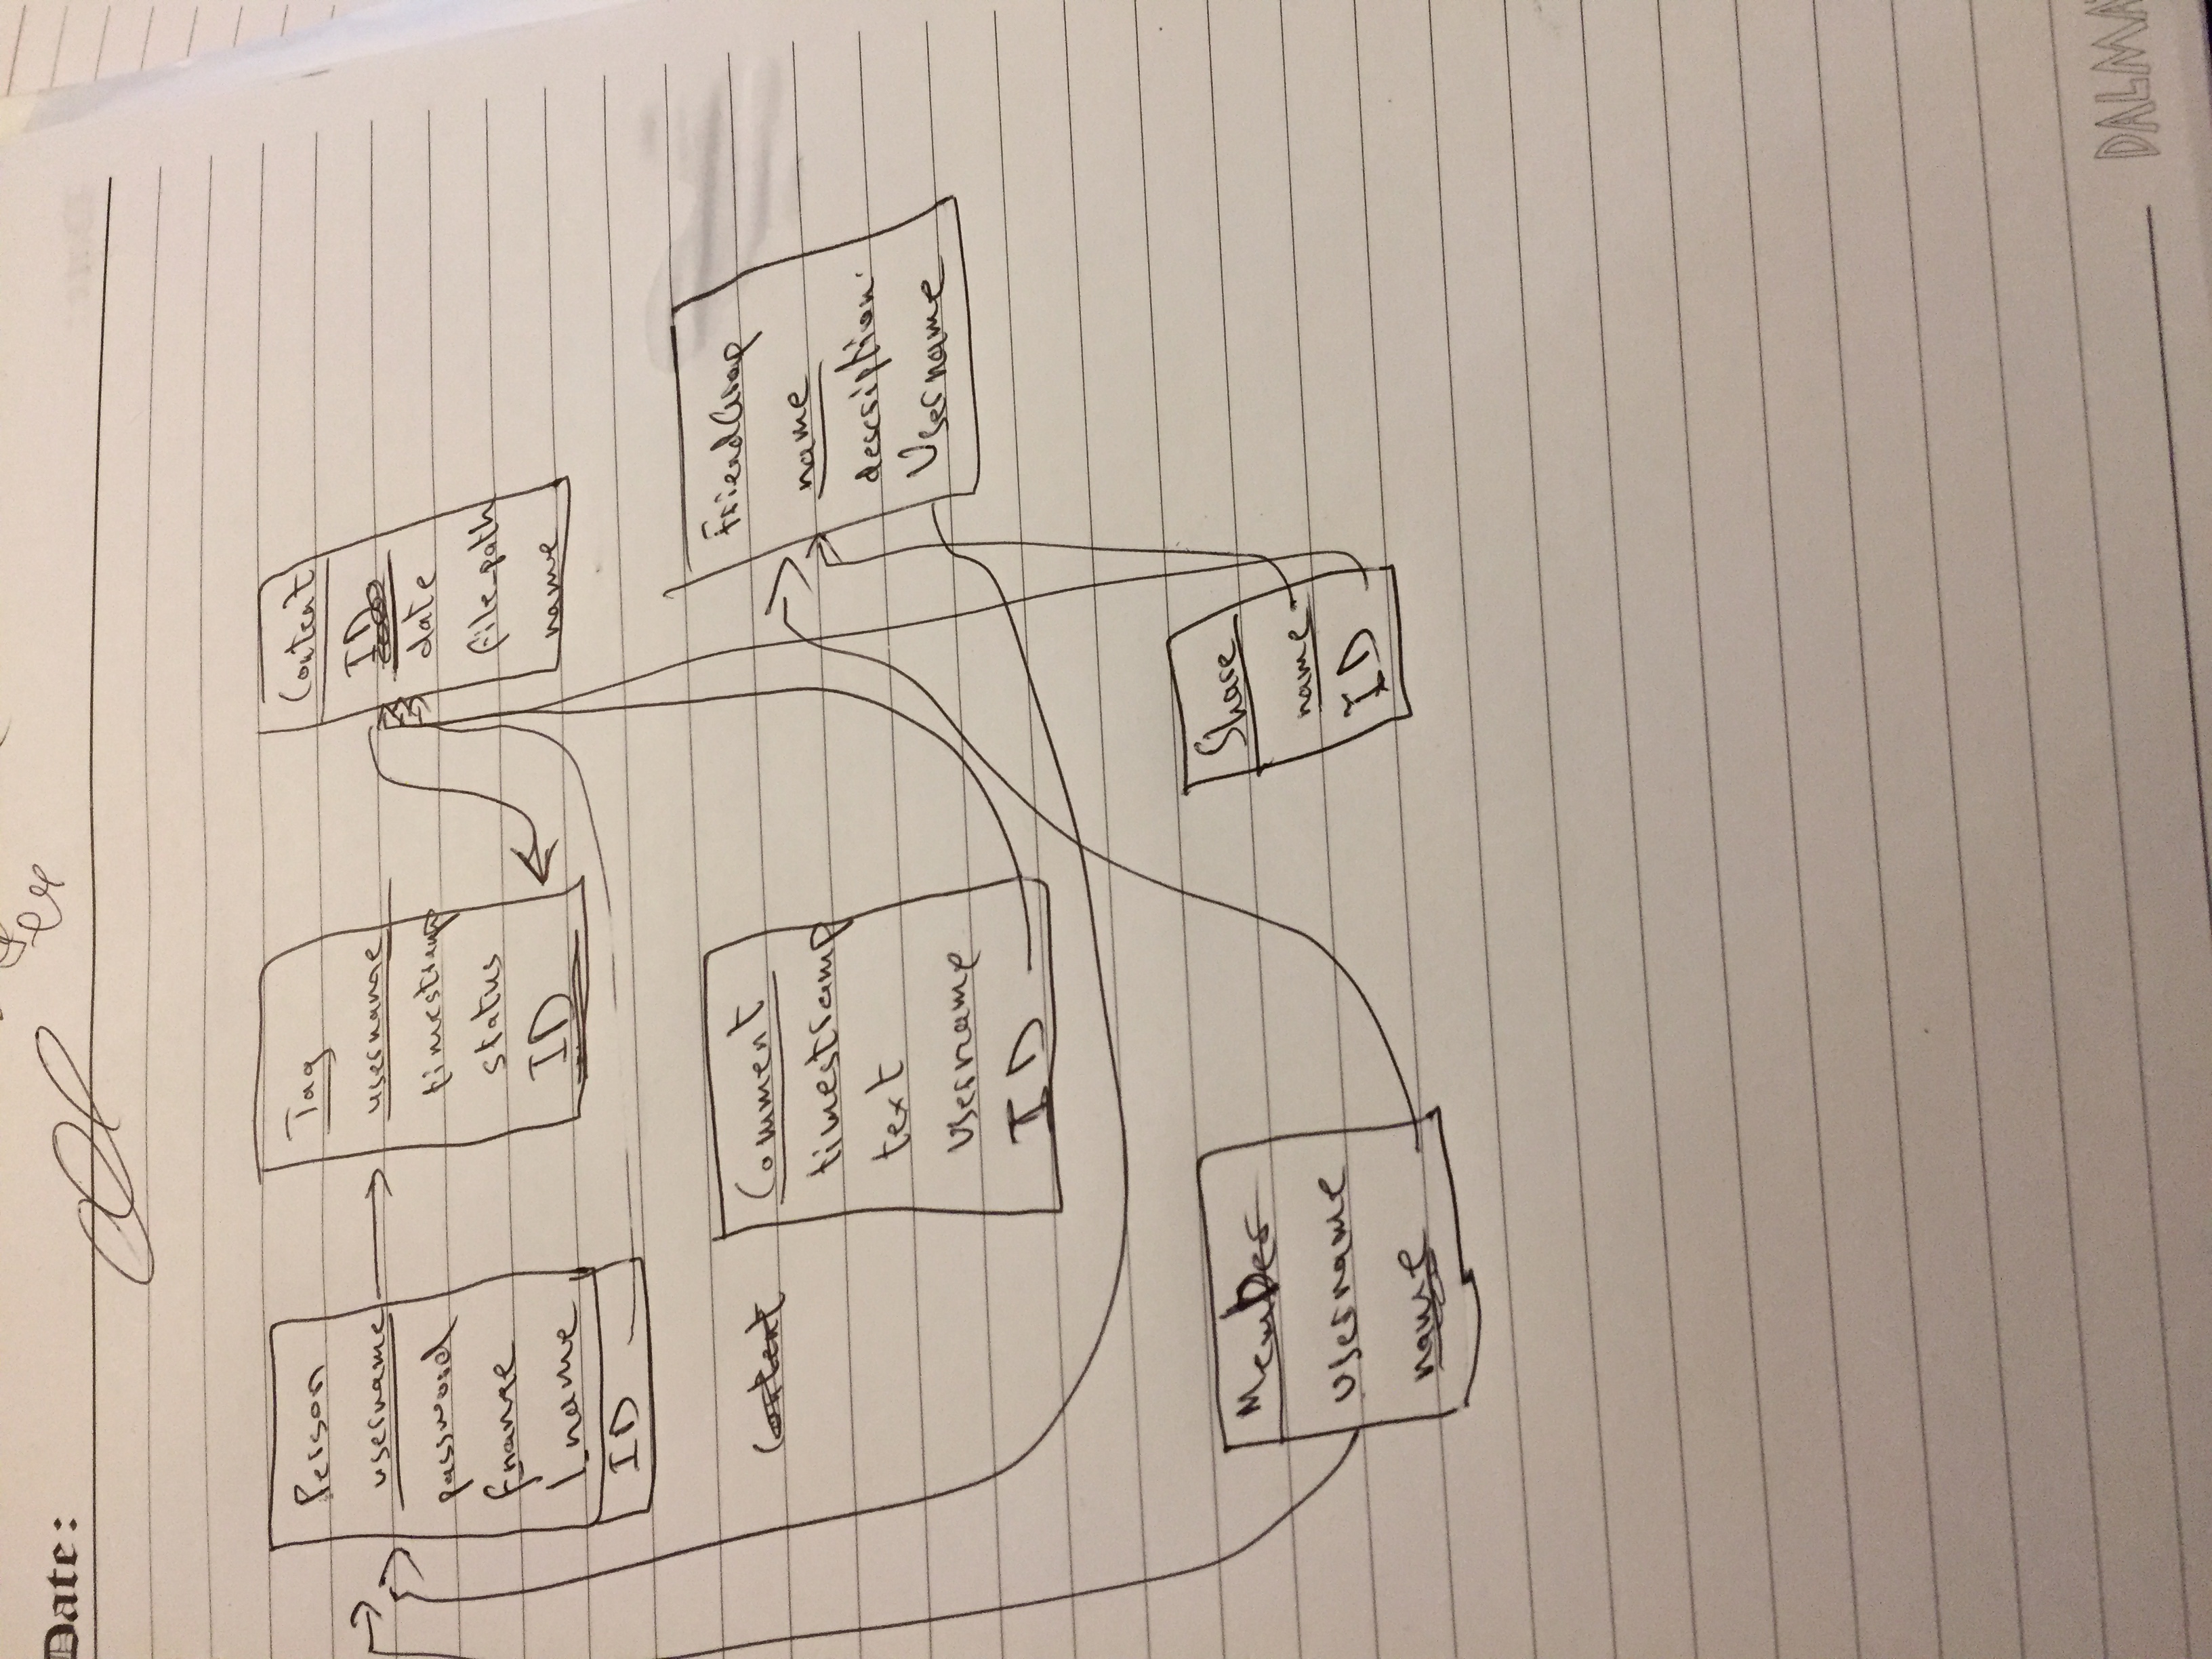 Date:
Person
username
password
fname
l_name
ID
Tag
username
timestramp
status
ID
Content
ID
date
file_path
name
Content
Comment
timestramp
text
username
ID
FriendGroup
name
description
Username
Member
username
name
Share
name
ID